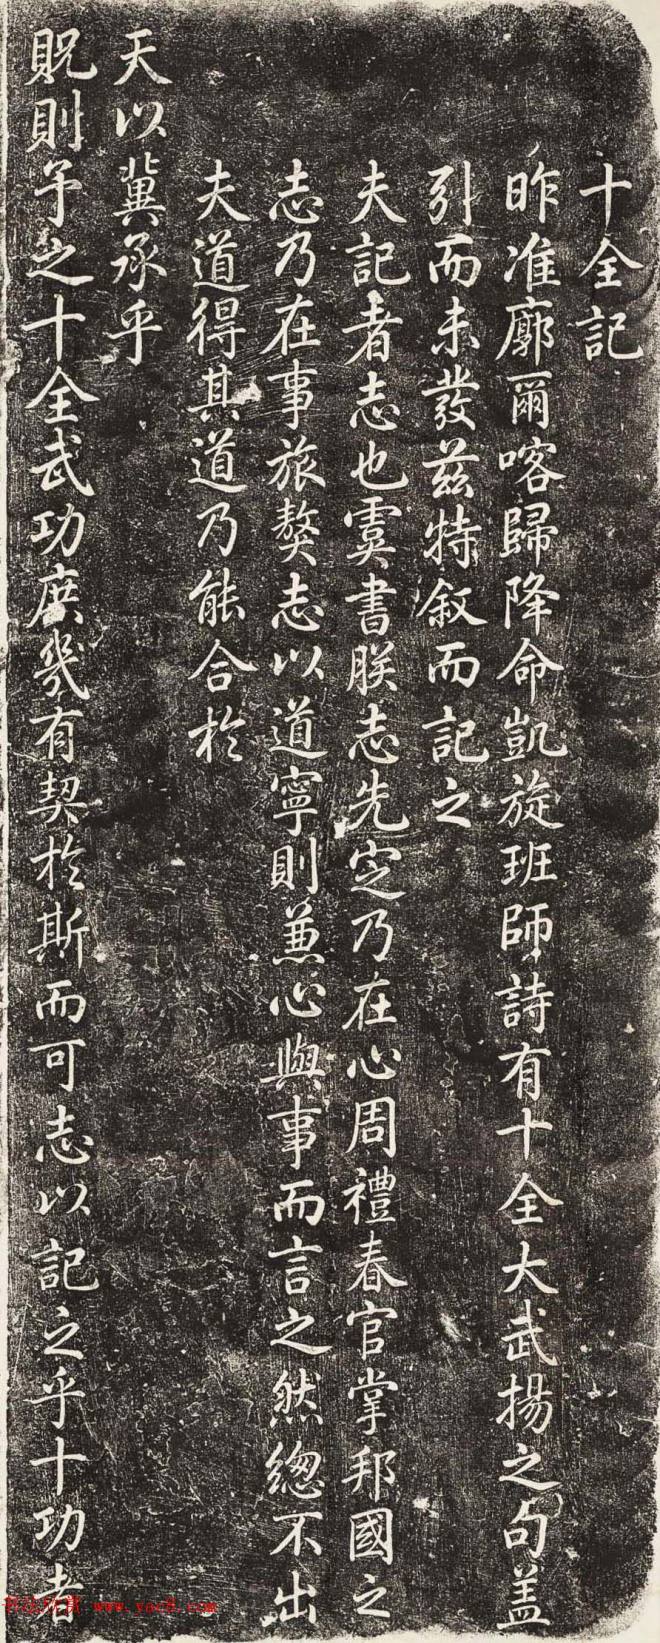 十全記
昨准廓爾喀歸降命凱旋班師詩有十全大武揚之句蓋
引而未發茲特叙而記之
夫記者志也虞書朕志先定乃在心周禮春官掌邦國之
志乃在事旅獒志以道寧則兼心與事而言之然總不出
夫道得其道乃能合於
天以冀承乎
貺則予之十全武功庶幾有契於斯而可志以記之乎十功者
书法欣赏 www.yac8.com